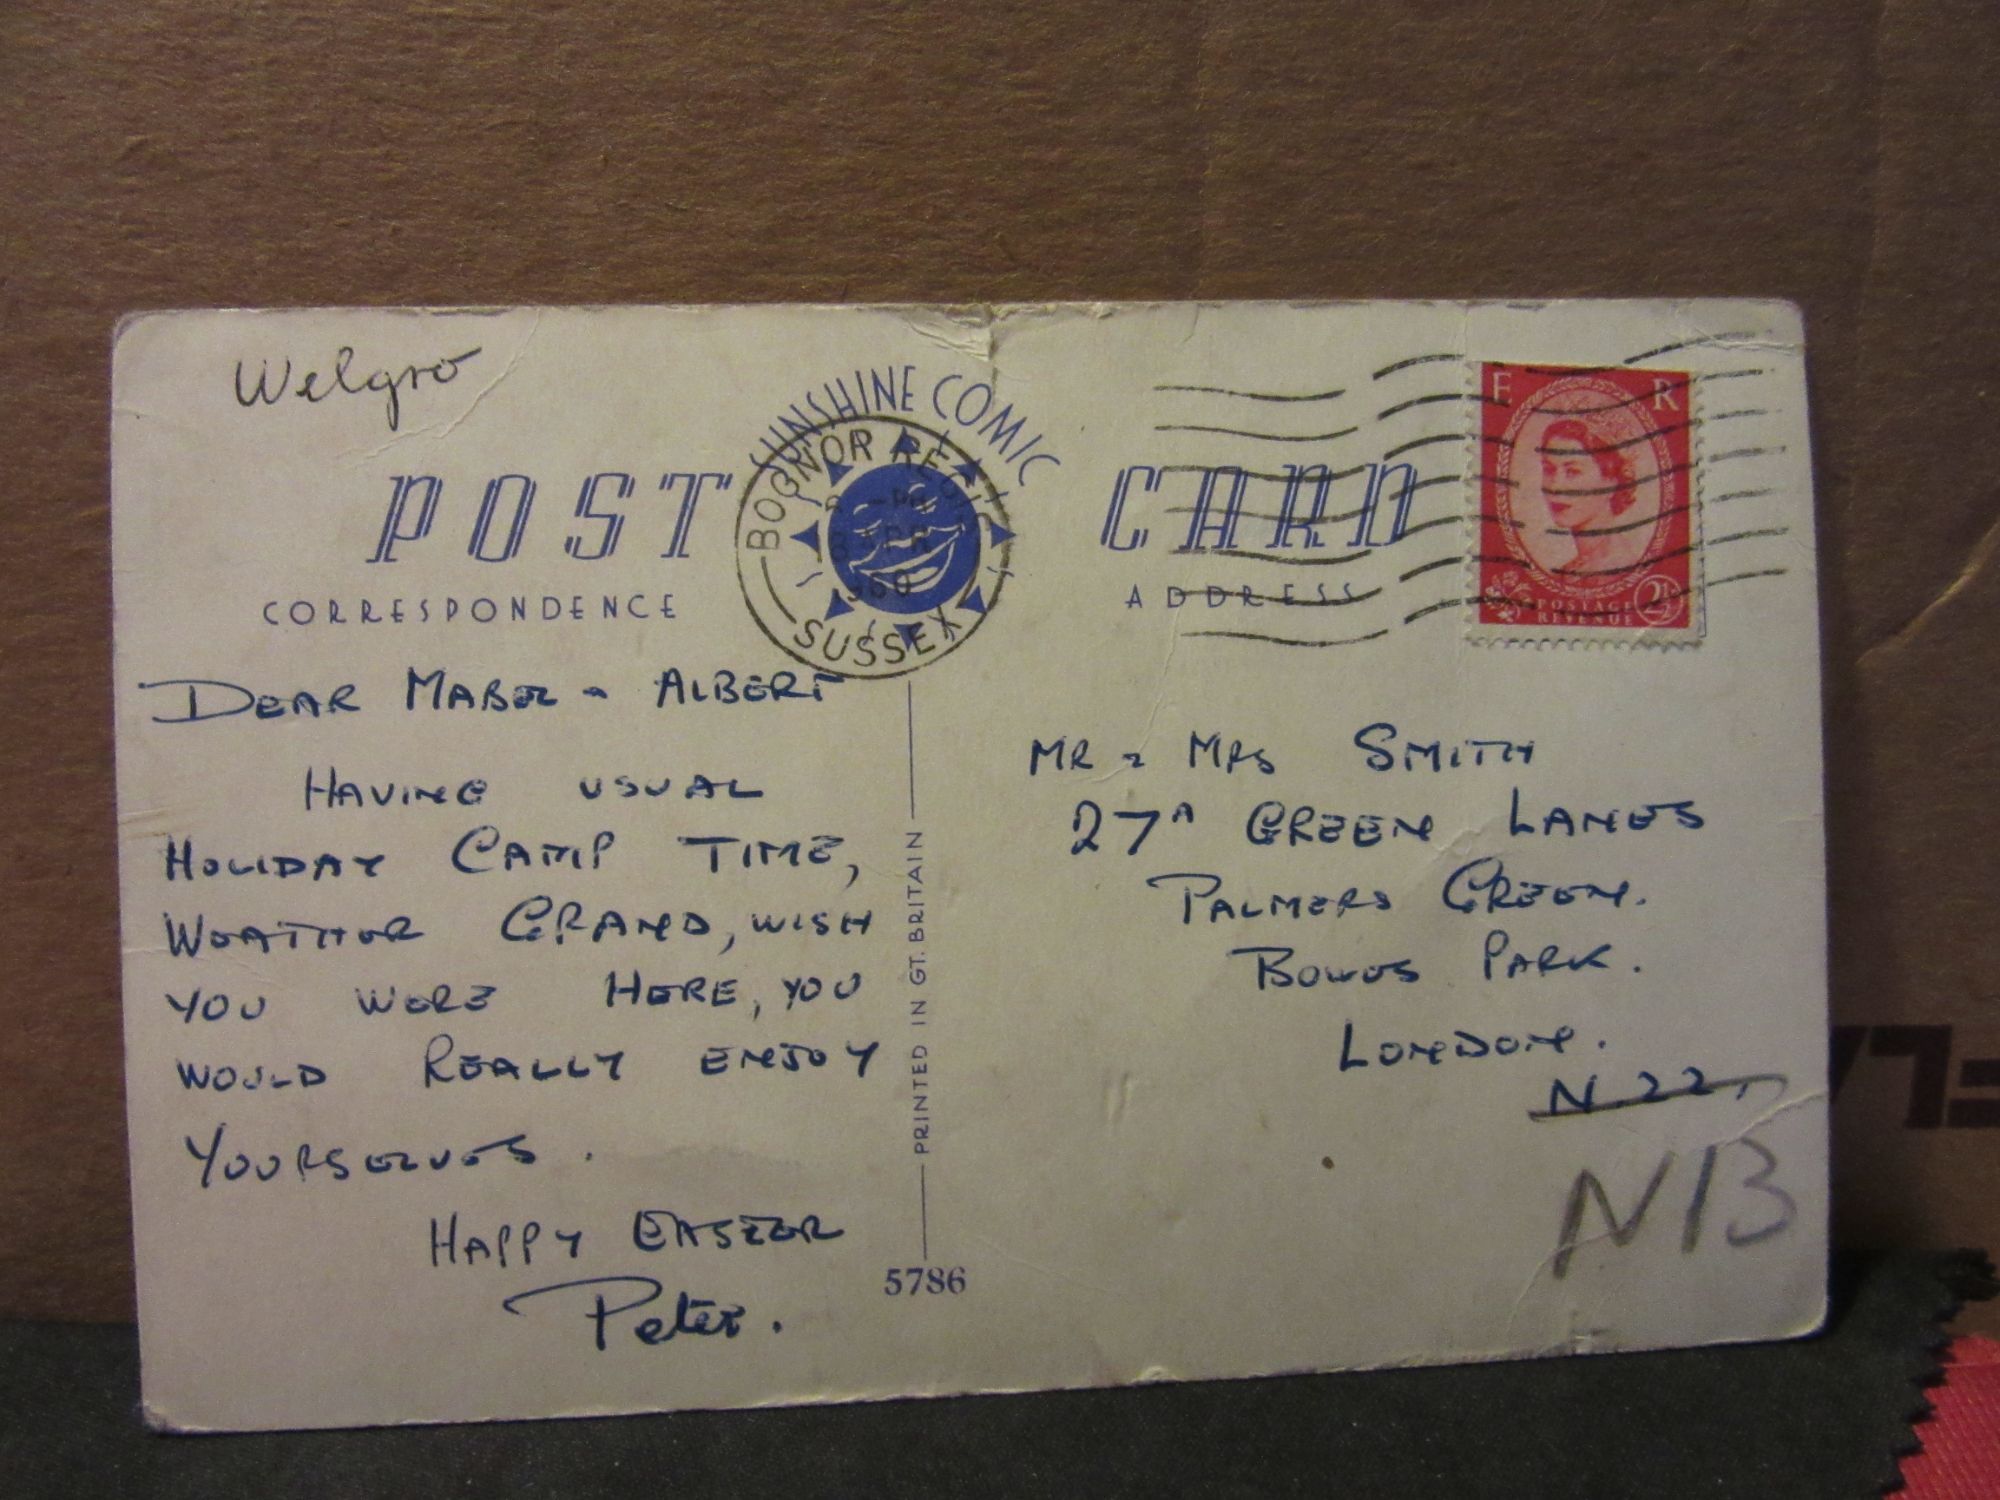 Welgro
SUNSHINE COMIC
POST CARD
CORRESPONDENCE
ADDRESS
BOGNOR REGIS
PM
APR
1960
SUSSEX
E R
POSTAGE
REVENUE
2½
DEAR MABEL & ALBERT
HAVING USUAL
HOLIDAY CAMP TIME,
WEATHER GRAND, WISH
YOU WERE HERE, YOU
WOULD REALLY ENJOY
YOURSELVES.
HAPPY EASTER
Peter.
PRINTED IN GT. BRITAIN
5786
MR & MRS SMITH
27A GREEN LANES
PALMERS GREEN.
BOWES PARK.
LONDON.
N.22.
N13